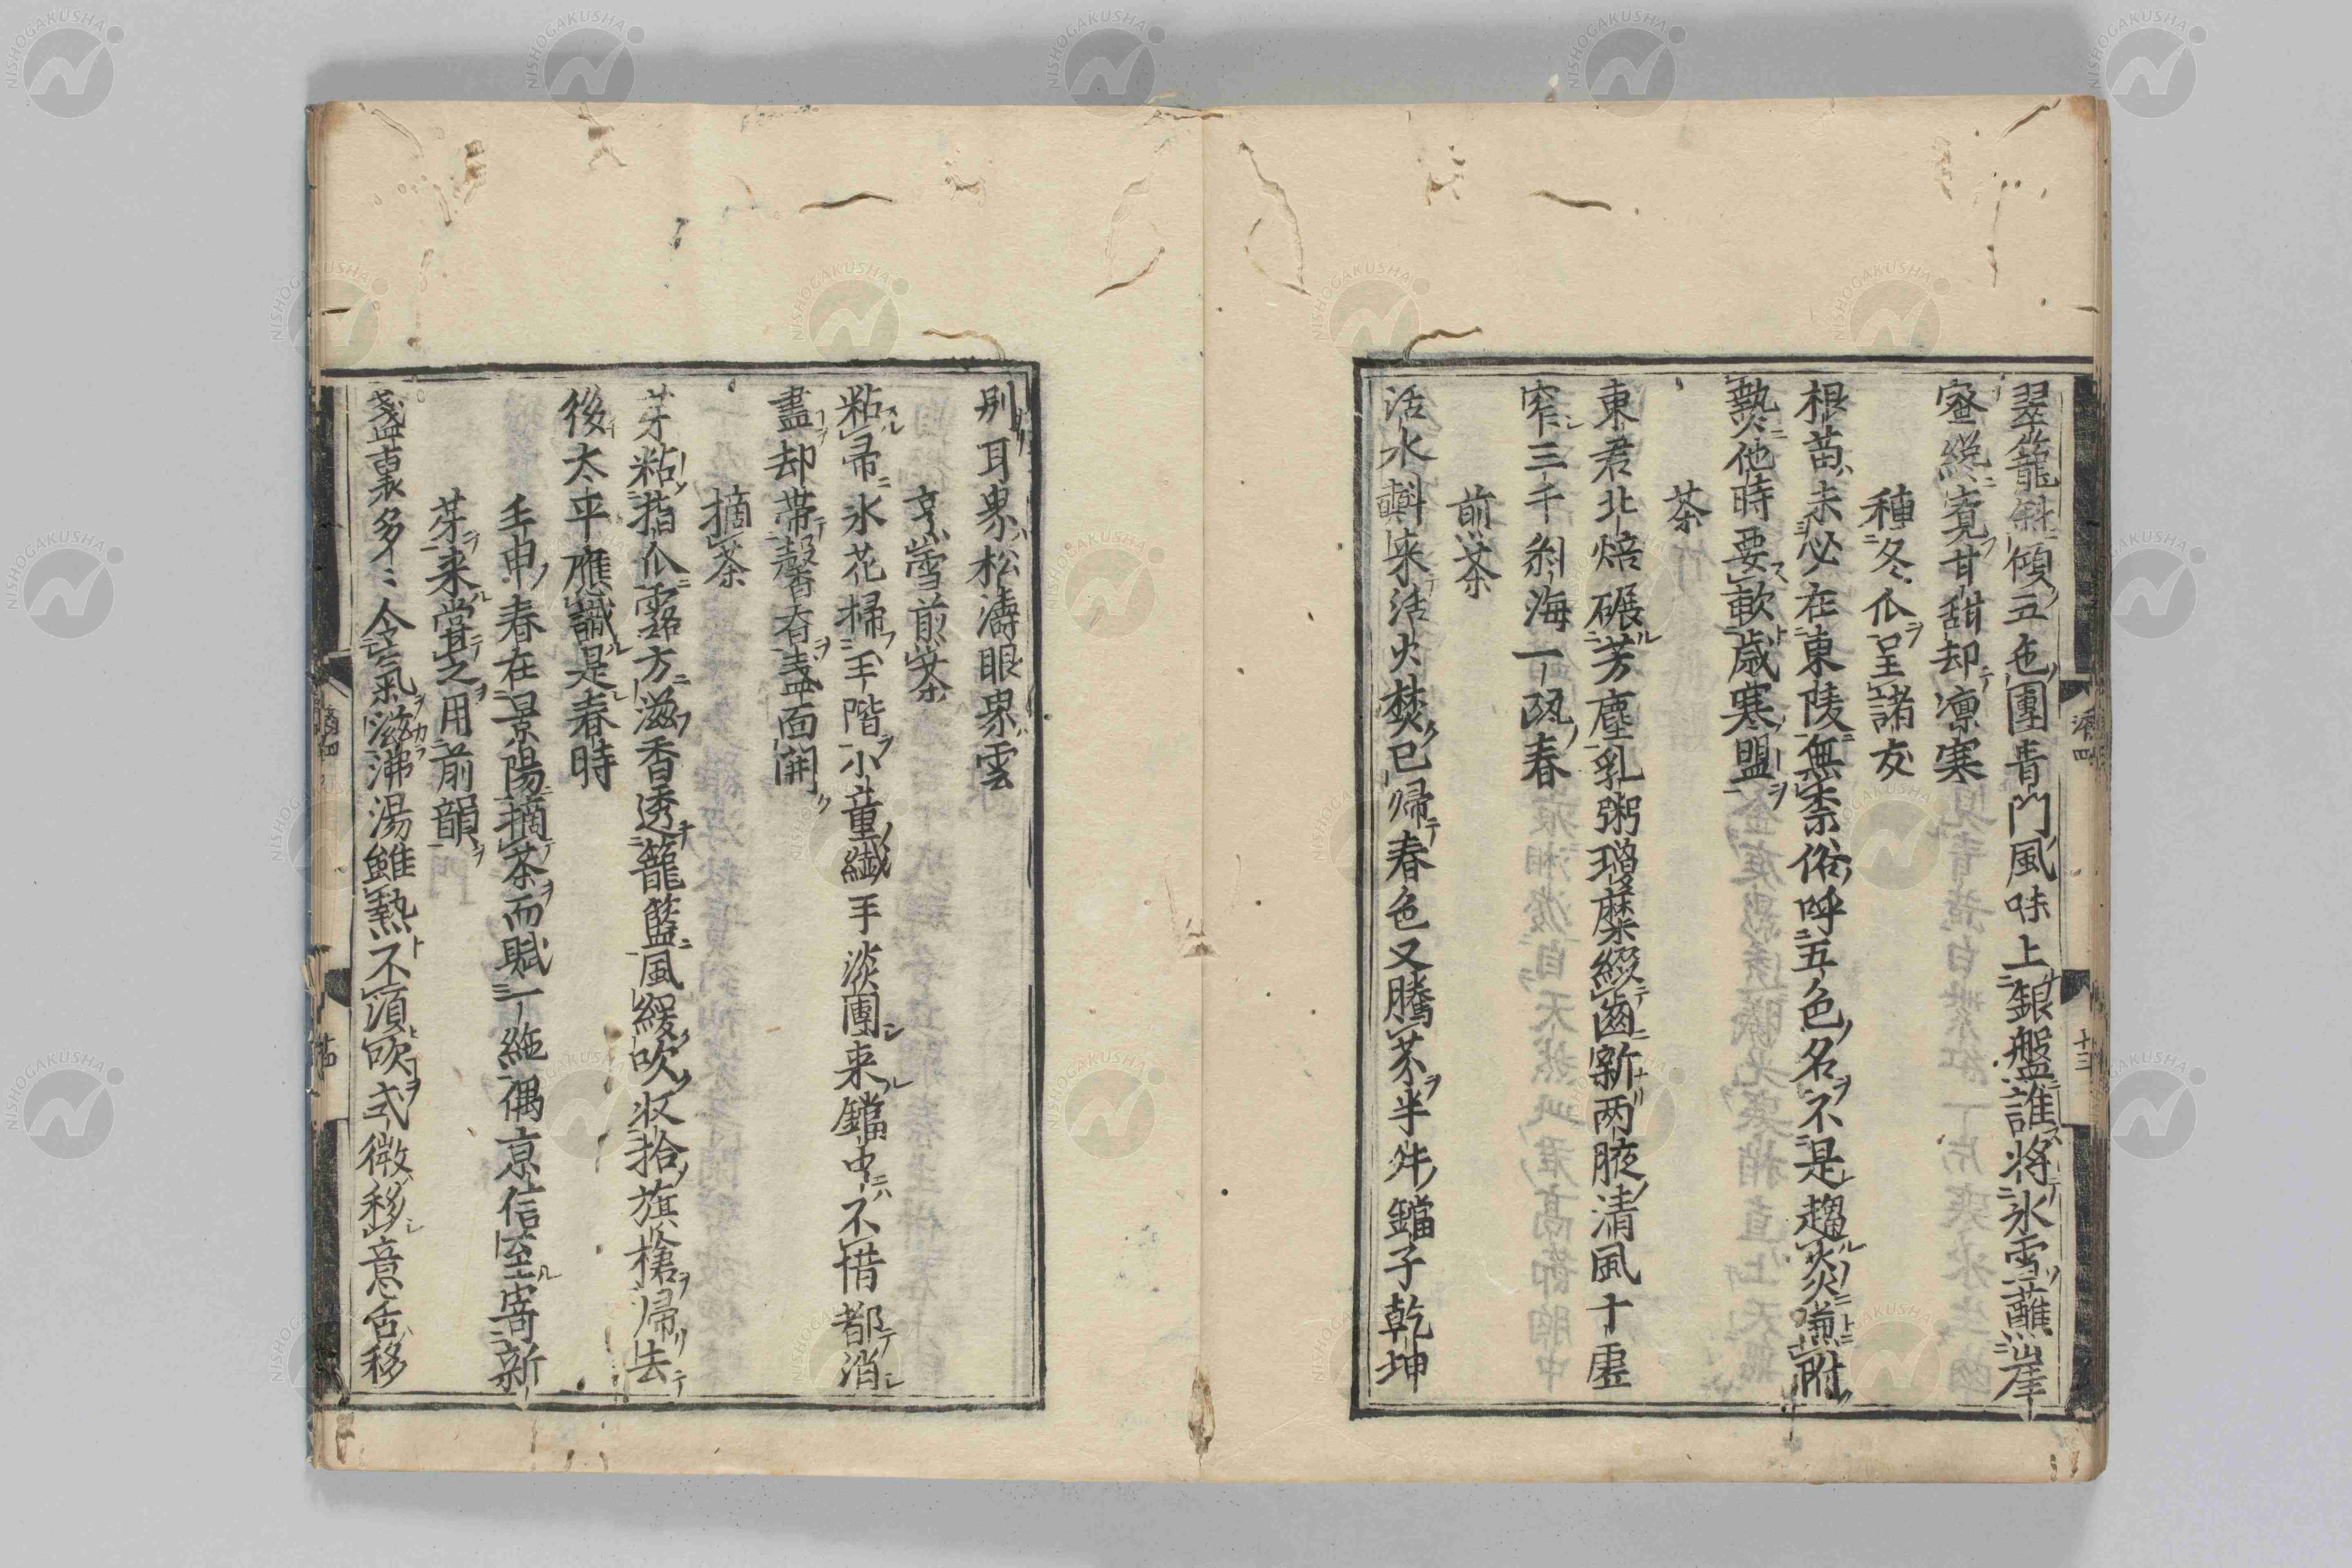 翠籠斜傾五色團青門風味上銀盤誰將氷雪蘸崖
蜜纔覚甘甜却凛寒
種冬瓜呈諸友
根苗未必在東陵無柰俗呼五色名不是趨炎嫌附
熱他時要軟歳寒盟
茶
東君北焙碾芳塵乳粥瓊糜綴齒新両腋清風十虚
窄三千刹海一甌春
煎茶
活水斟来活火焚已帰春色又騰芬半升鐺子乾坤
別耳界松濤眼界雲
烹雪煎茶
粘帚氷花掃玉階小童繊手淡團来鐺中不惜都消
盡却帯馨香吞盞面開
摘茶
芽粘指爪露方滋香透籠籃風緩吹収拾旗槍帰去
後太平應識是春時
壬申春在景陽摘茶而賦一絶偶京信至寄新
芽来嘗之用前韻
盞裏多多令氣滋沸湯雖熱不須吹弐微移意舌移
滴四
十三
滴四
十四
NISHOGAKUSHA